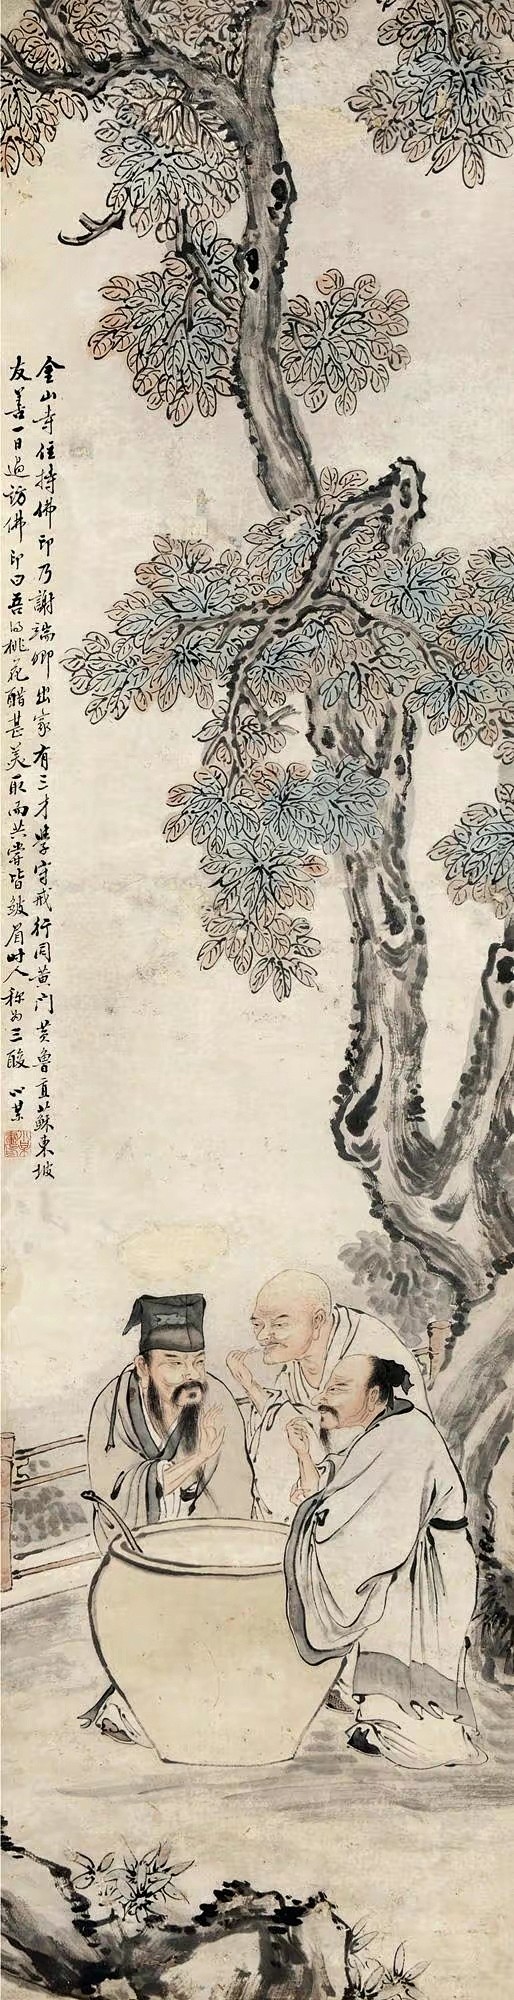 金山寺住持佛印乃謝端卿出家有三才學守戒行同黃門黃魯直蘇東坡
友善一日過訪佛印曰吾得桃花醋甚美取而共嘗皆皺眉時人称为三酸 心某